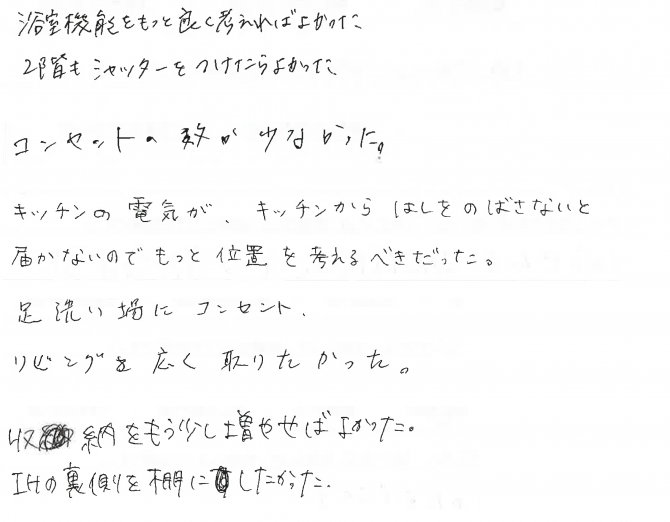 浴室機能をもっと良く考えればよかった
2階もシャッターをつけたらよかった
コンセントの数が少なかった。
キッチンの電気が、キッチンからはしをのばさないと
届かないのでもっと位置を考えるべきだった。
足洗い場にコンセント、
リビングを広く取りたかった。
収納をもう少し増やせばよかった。
IHの裏側を棚にしたかった。